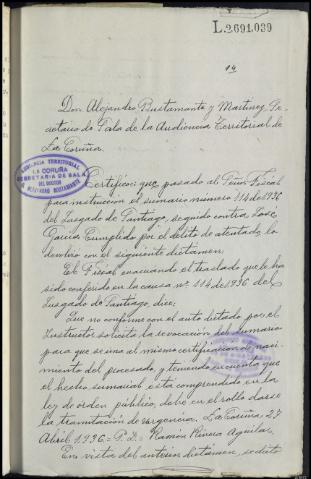 L.2691.039
14
Don Alejandro Bustamante y Martinez, Se-
cretario de Sala de la Audiencia Territorial de
La Coruña.
AUDIENCIA TERRITORIAL
LA CORUÑA
SECRETARIA DE SALA
DEL DOCTOR
ALEJANDRO BUSTAMANTE
Certifico: que pasado al Señor Fiscal
para instrucción el sumario número 114 de 1936
del Juzgado de Santiago, seguido contra José
García Cumplido por el delito de atentado, lo
devolvió con el siguiente dictamen.
El Fiscal evacuando el traslado que le ha
sido conferido en la causa nº. 114 de 1936 del
Juzgado de Santiago, dice:
Que no conforme con el auto dictado por el
Instructor solicita la revocación del sumario
para que se una al mismo certificación de naci-
miento del procesado, y teniendo en cuenta que
el hecho sumarial está comprendido en la
ley de orden público, debe en el rollo darse
la tramitación de urgencia. La Coruña, 27
Abril 1936.= P.D.= Ramón Rivera Aguilar.
En vista del anterior dictámen, se dictó